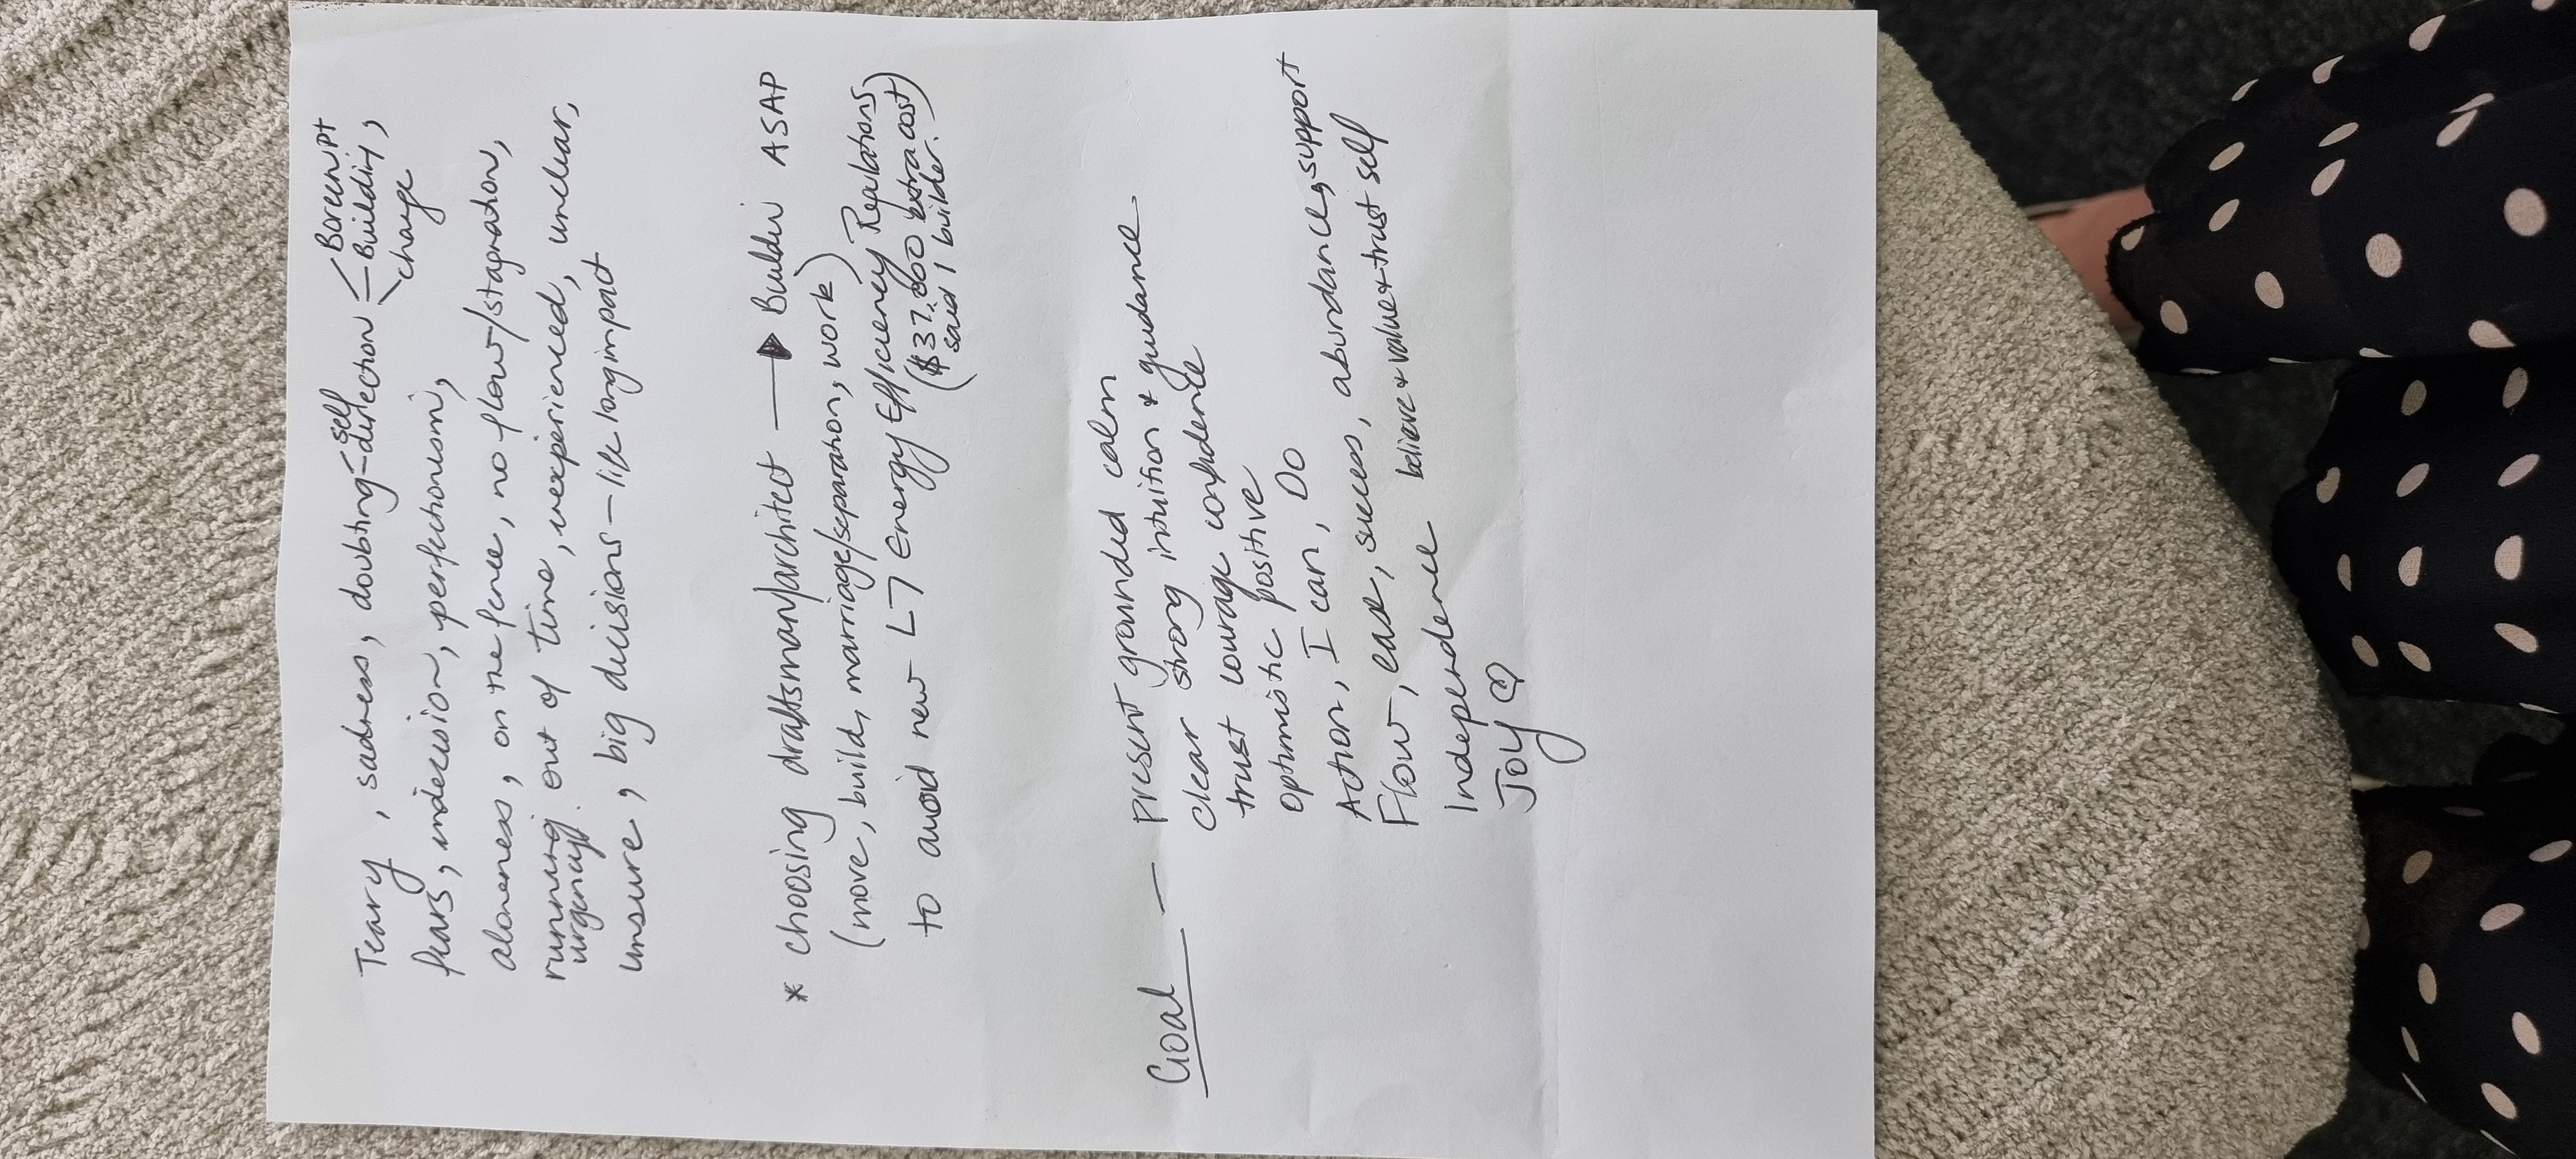 Teary, sadness, doubting – self
– direction – Boreen Pt
– Building,
change
fears, indecision, perfectionism,
aloneness, on the fence, no flow/stagnation,
running out of time, inexperienced, unclear,
urgency.
unsure, big decisions – life long impact
* choosing draftsman/architect → Builder ASAP
(move, build, marriage/separation, work)
to avoid new L7 Energy Efficiency Regulations
($37,000 extra cost)
said 1 builder.
Goal – present grounded calm
clear strong intuition & guidance
trust courage confidence
optimistic positive
Action, I can, Do
Flow, ease, success, abundance, support
Independence believe & value & trust self
Joy ♡